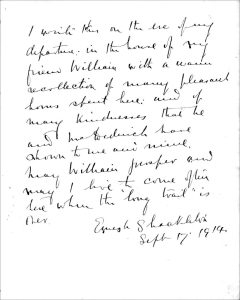 I write this on the eve of my
departure in the house of my
friend William with a warm
recollection of many pleasant
hours spent here and of
many kindnesses that he
and Mrs have
shown to me and mine.
May William prosper and
may I live to come often
here when the "long trail" is
over.
Ernest Shackleton
Sept 17. 1914